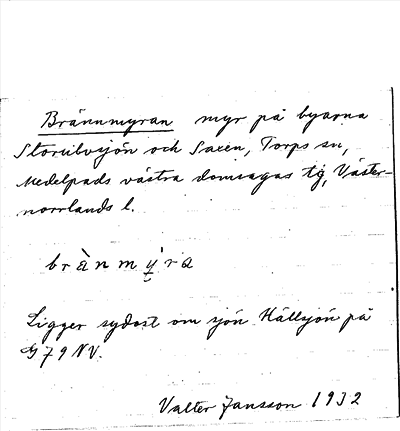 Brännmyran myr på byarna
Storulvsjön och Saxen, Torps sn,
Medelpads västra domsagas tg, Väster-
norrlands l.
brànmỳ̱ra
Ligger sydost om sjön Hällsjön på
G79NV.
Valter Jansson 1932